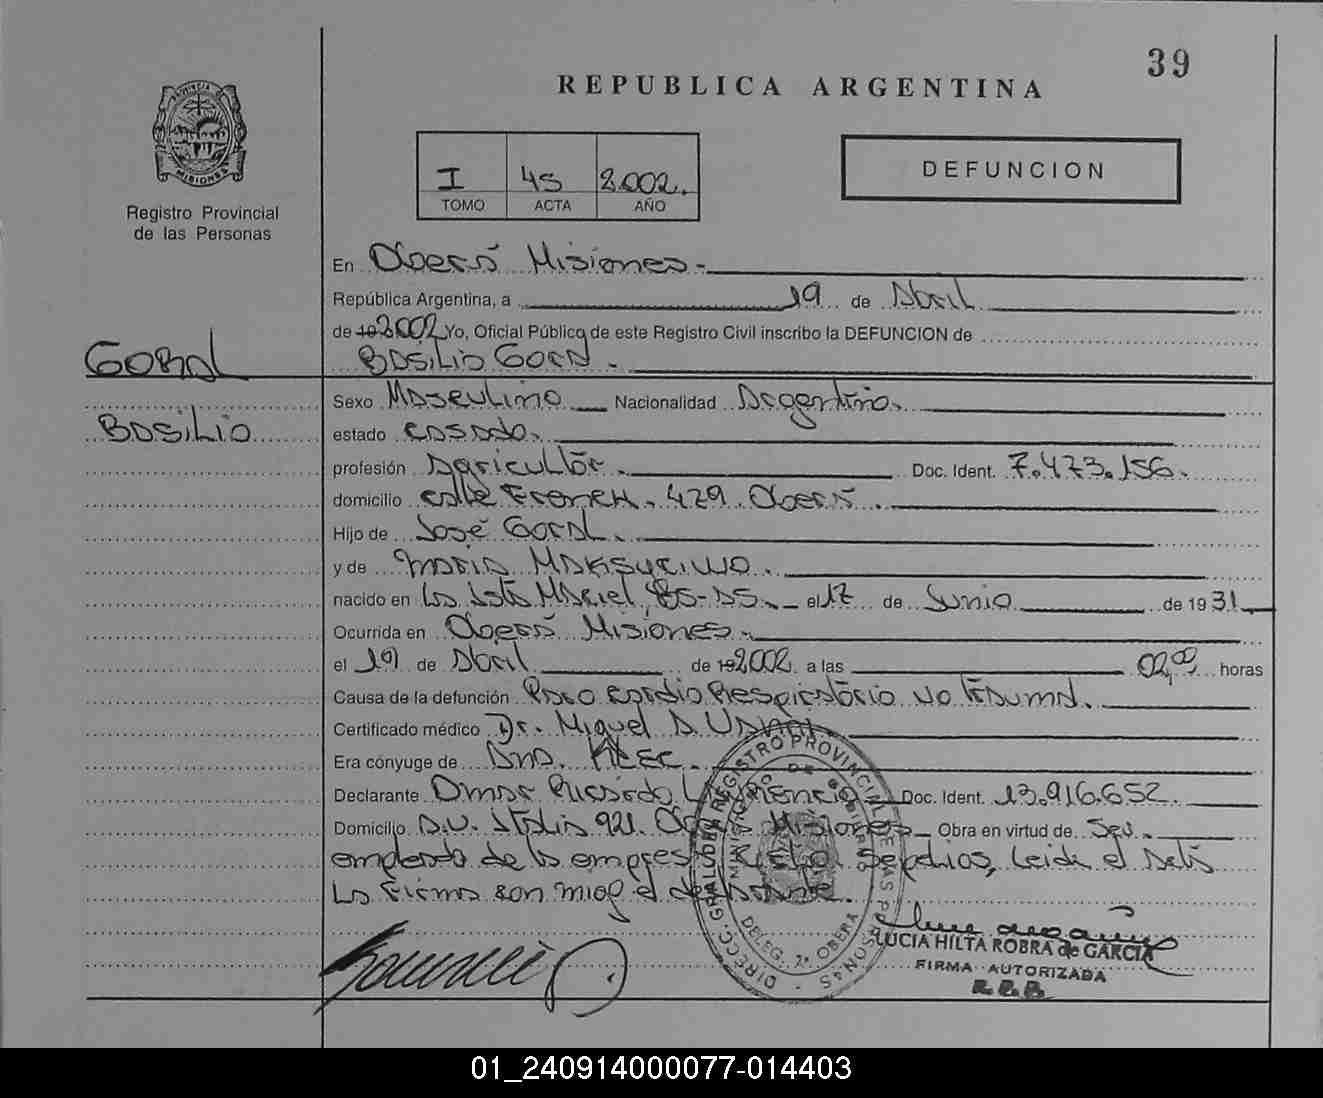 39
REPUBLICA ARGENTINA
PROVINCIA DE
MISIONES
Registro Provincial
de las Personas
I 45 2.002.
TOMO ACTA AÑO
DEFUNCION
En Oberá Misiones.-
República Argentina, a 19 de Abril
de 19 2002 Yo, Oficial Público de este Registro Civil inscribo la DEFUNCION de
GORAL
Basilio Goral.
Sexo Masculino Nacionalidad Argentino.
BASILIO
estado casado.
profesión Agricultor. Doc. Ident. 7.473.156.
domicilio calle French. 429. Oberá.
Hijo de José Goral.
y de María
nacido en Bs-As. el 17 de Junio de 1931
Ocurrida en Oberá Misiones.
el 19 de Abril de 19 2002 a las 02,00 horas
Causa de la defunción Paro cardio Respiratório no traumá.
Certificado médico Dr. Miguel A.
Era cónyuge de Ana.
Declarante Omar Ricardo Doc. Ident. 13.916.652.
Domicilio A.V. Italia 921. Misiones Obra en virtud de ser.
empleado de la empresa Sepelios, Leida el Acta
La Firma con migo el declarante.
DIRECC. GRAL. DEL REGISTRO PROVINCIAL DE LAS PERSONAS
MINISTERIO DE GOBIERNO
DELEG. 2ª OBERA
LUCIA HILTA ROBRA de GARCIA
FIRMA AUTORIZADA
R.P.P.
01_240914000077-014403